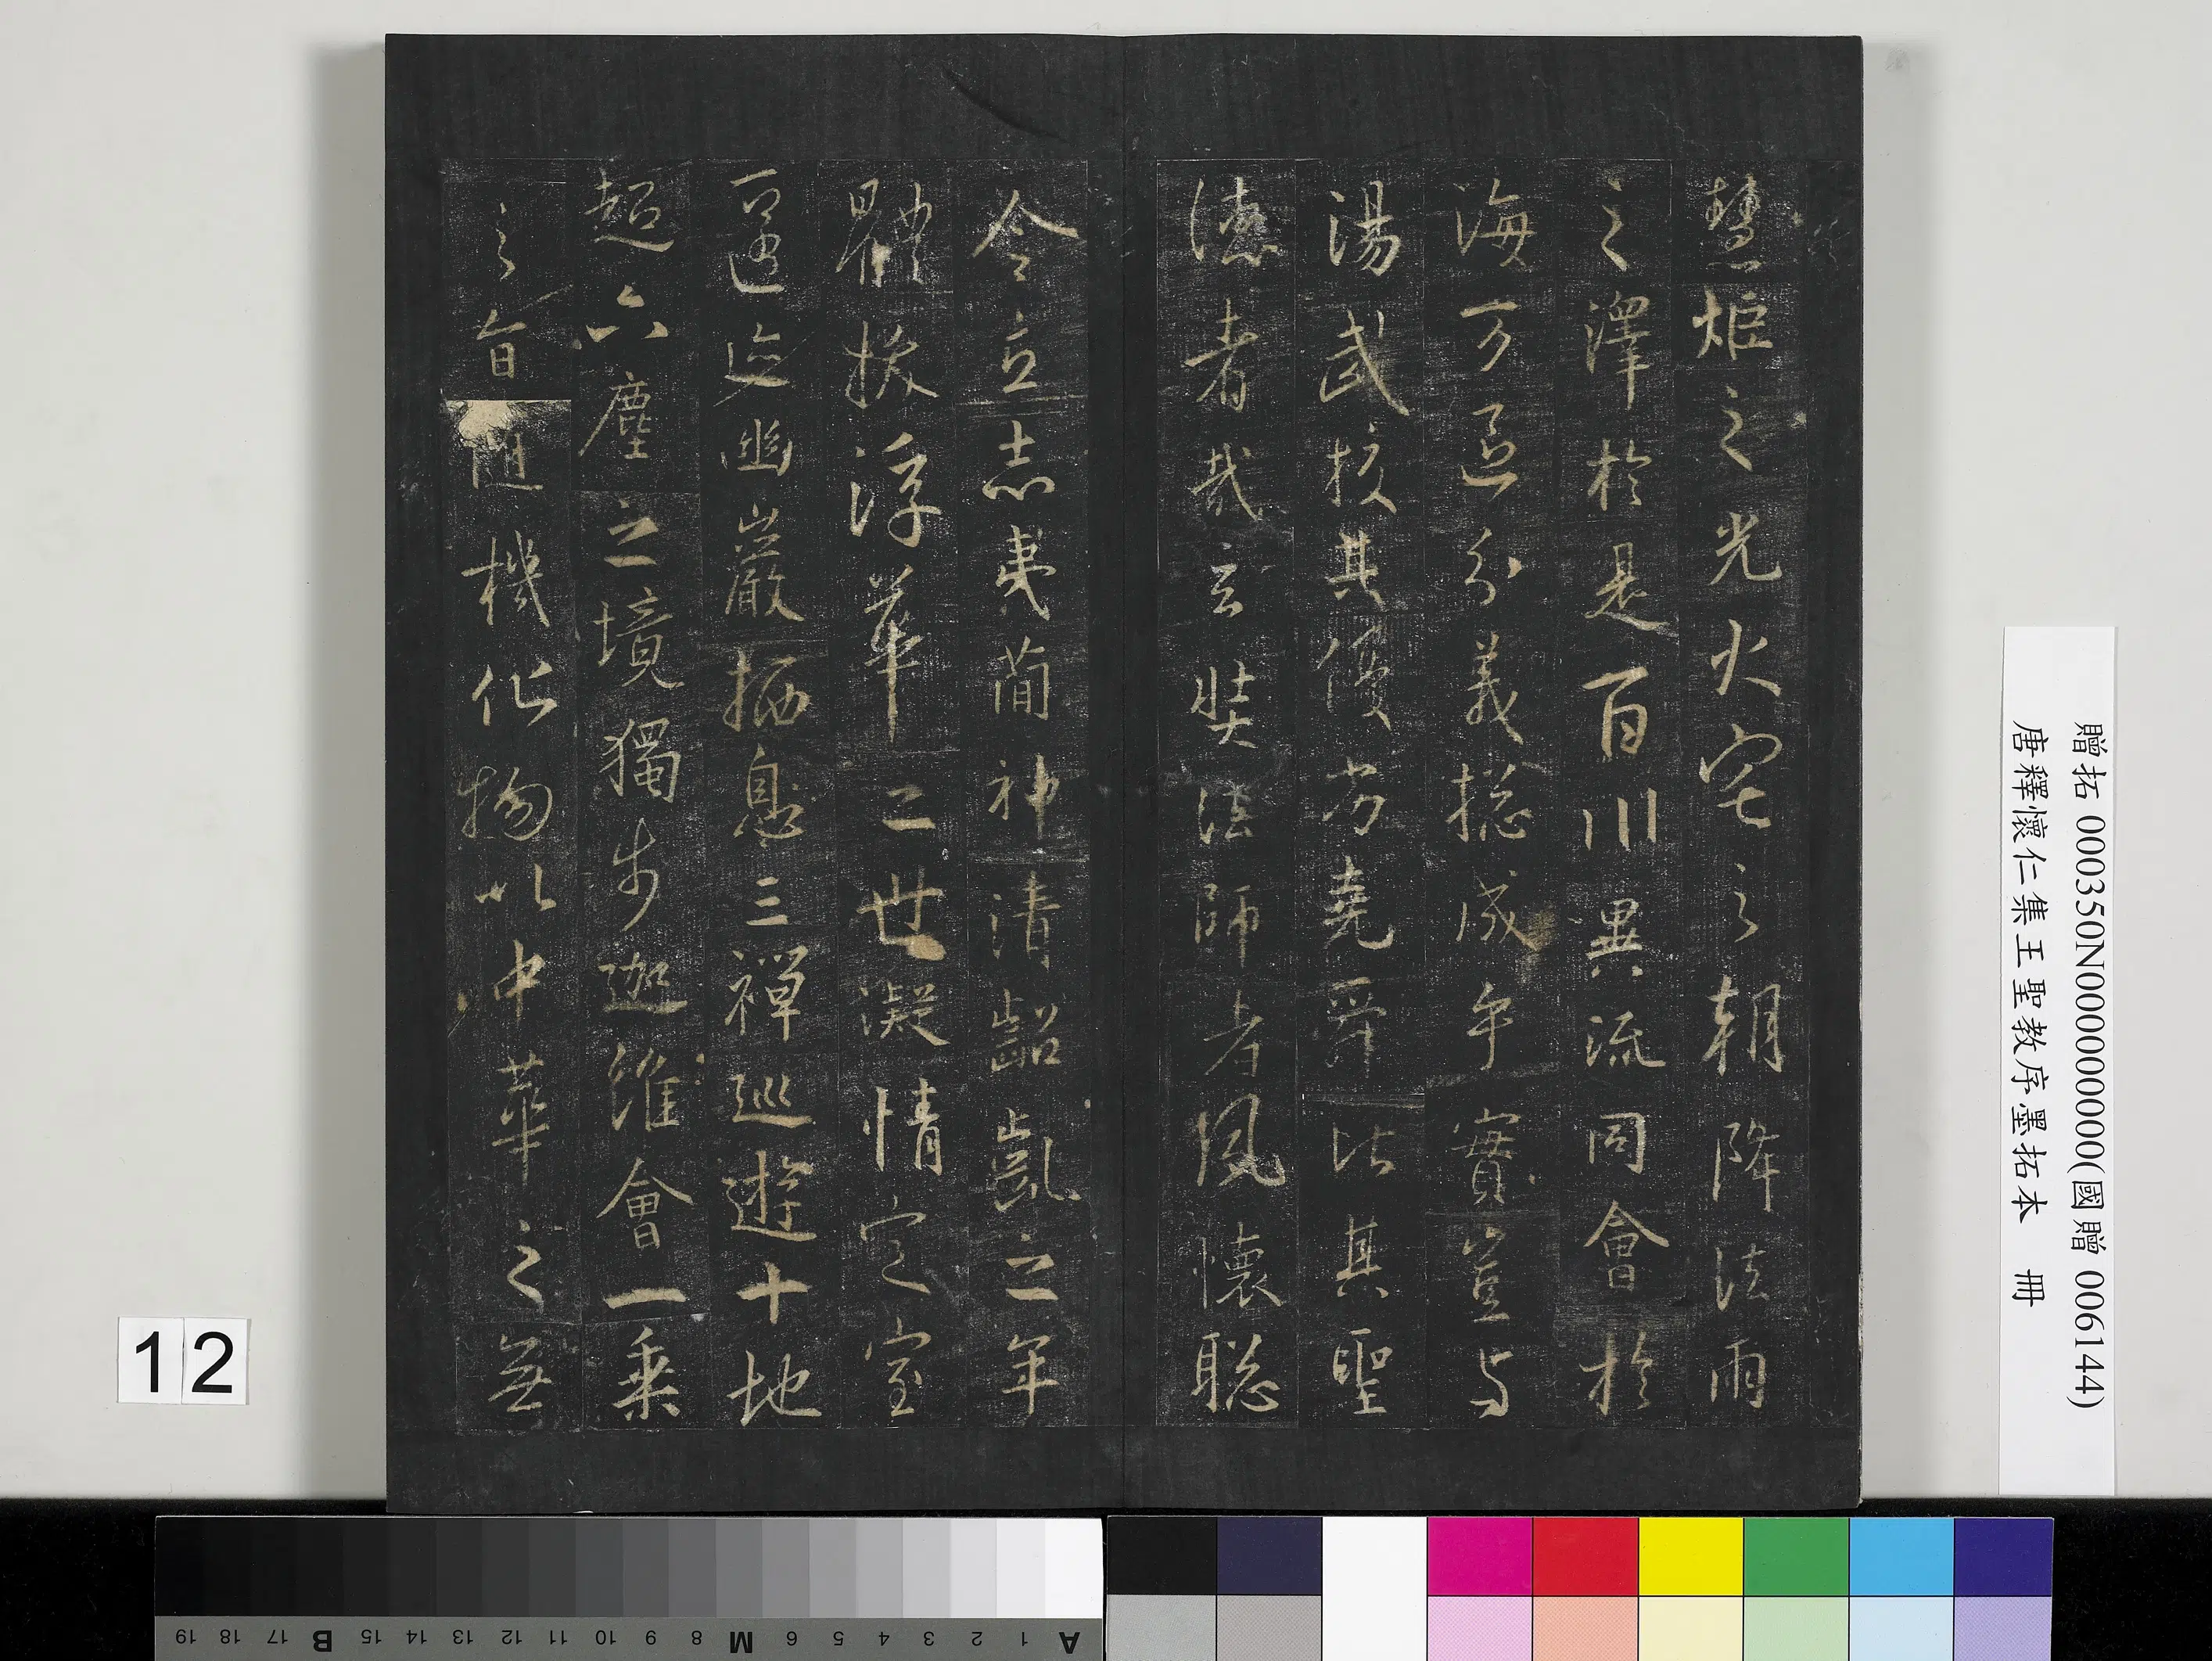 慧炬之光火宅之朝降法雨
之澤於是百川異流同會於
海万區分義揔成乎實豈与
湯武校其優劣堯舜比其聖
德者哉玄奘法師者夙懷聰
令立志夷簡神清齠齔之年
體拔浮華之世凝情定室
匿迹幽巖栖息三禪巡遊十地
超六塵之境獨步迦維會一乘
之旨隨機化物以中華之無
贈拓 000350N000000000(國贈 006144)
唐釋懷仁集王聖教序墨拓本 冊
12
A 1 2 3 4 5 6 M 8 9 10 11 12 13 14 15 B 17 18 19